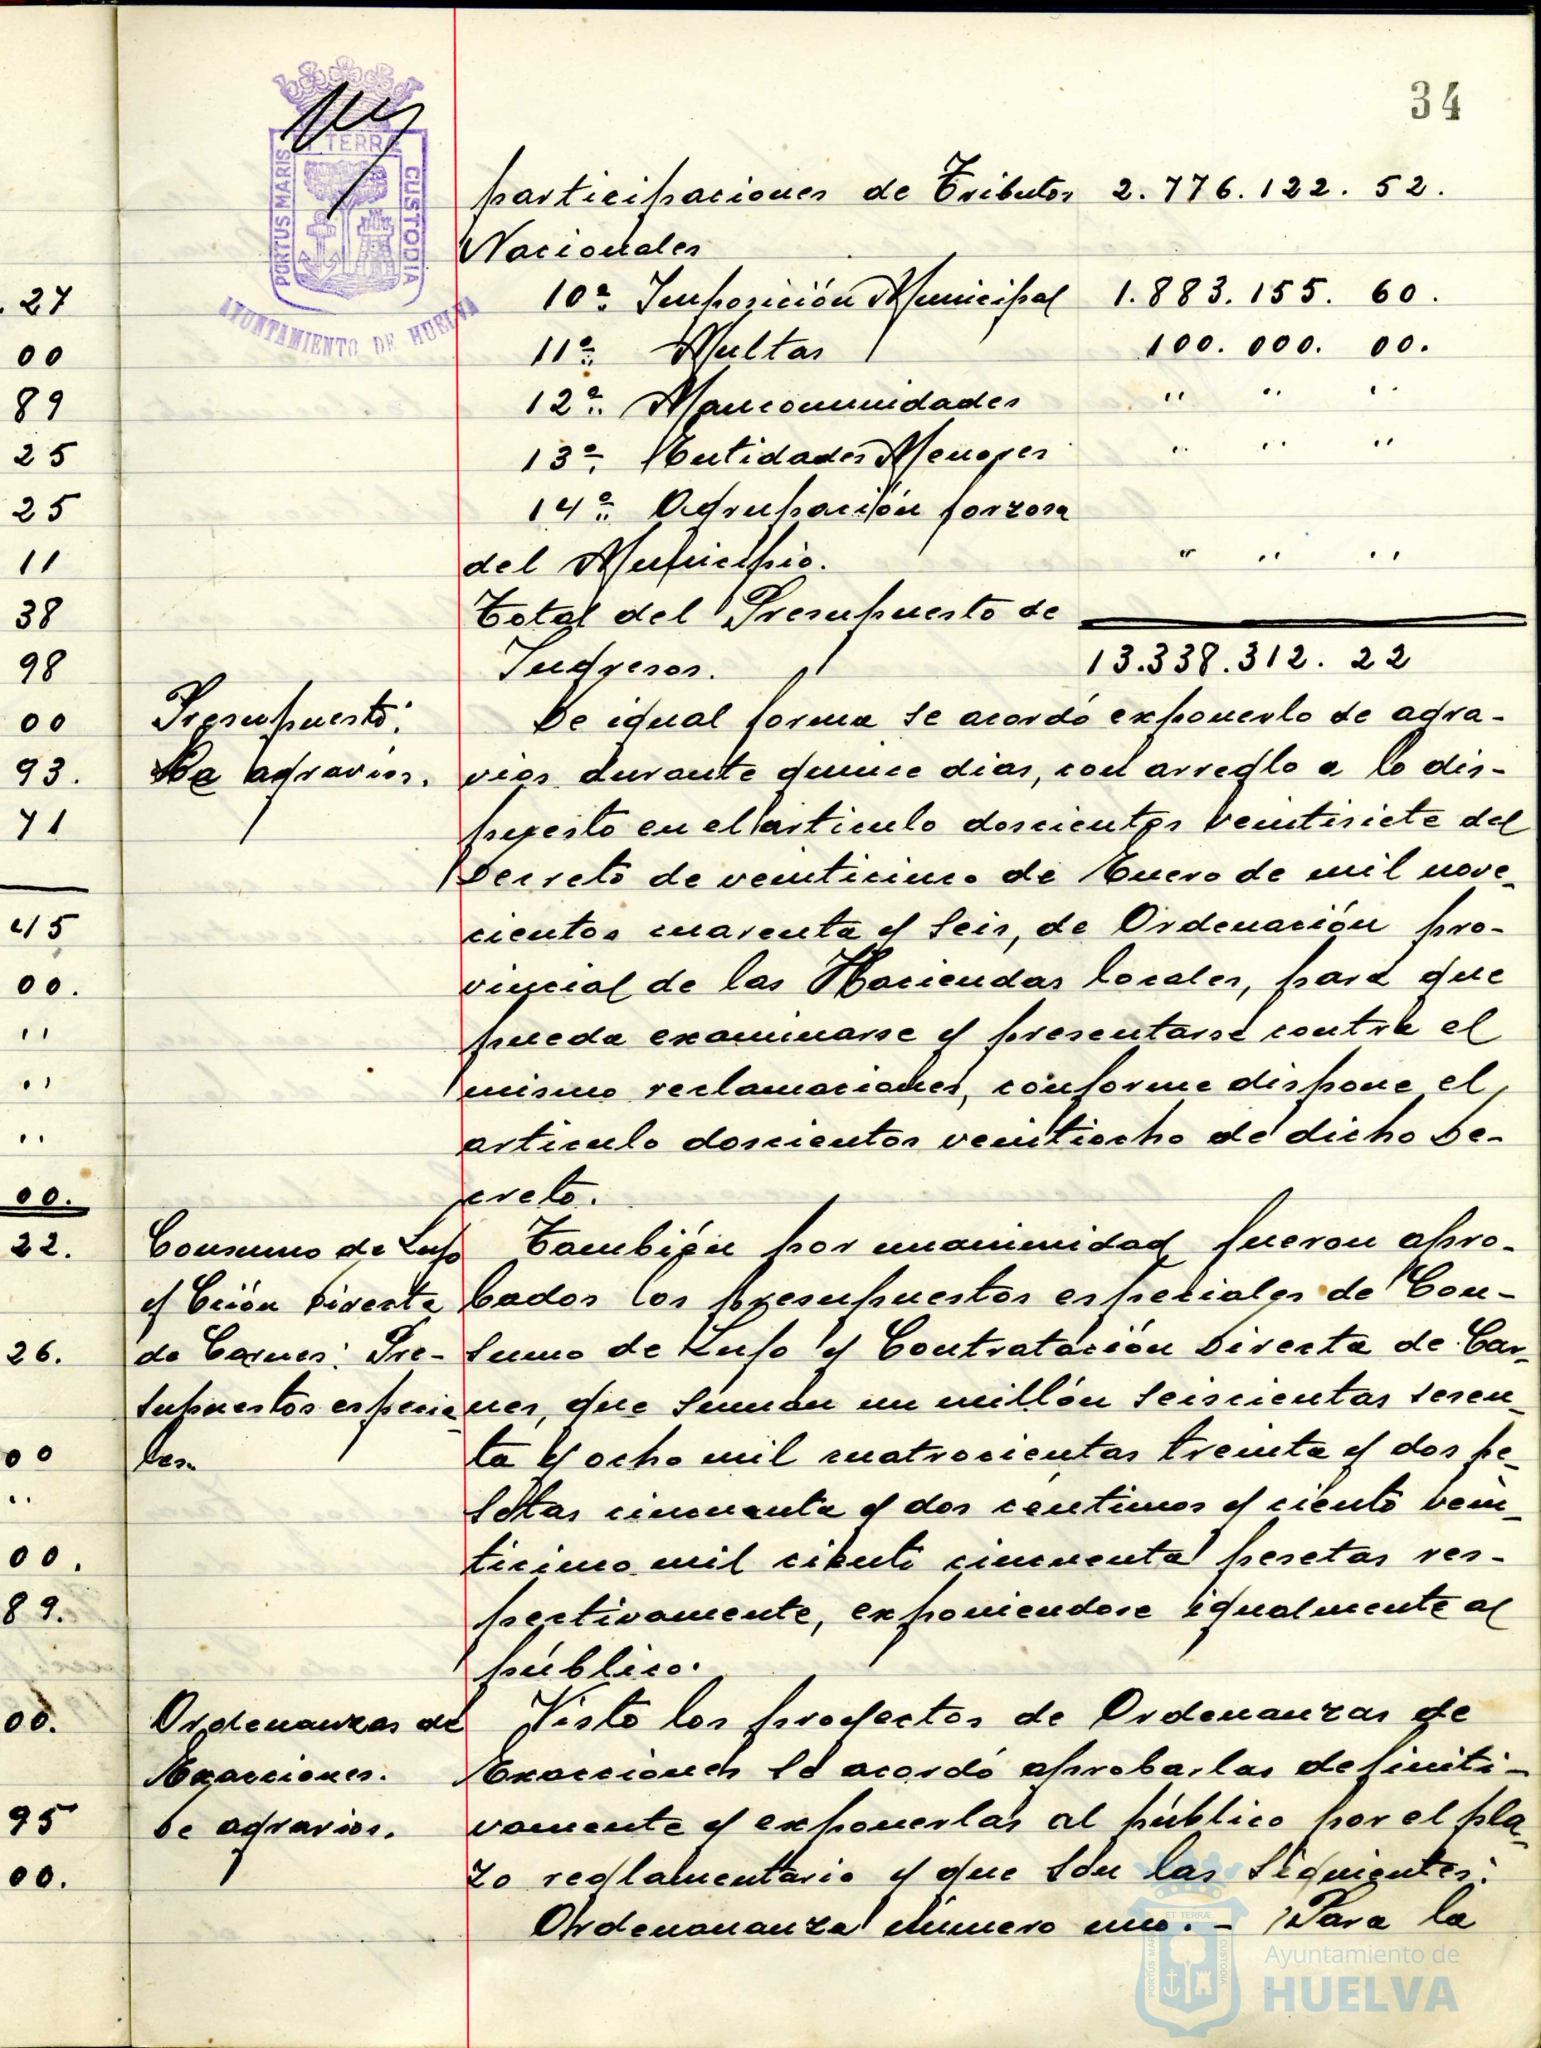 34
ET TERRÆ
PORTUS MARIS
CUSTODIA
AYUNTAMIENTO DE HUELVA
participaciones de Tributos 2.776.122. 52.
Nacionales
10ª Imposición Municipal 1.883.155. 60.
11ª. Multas 100.000. 00.
12ª. Mancomunidades " " "
13ª. Entidades Menores " " "
14ª. Agrupación forzosa
del Municipio. " " "
Total del Presupuesto de
Ingresos. 13.338.312. 22
Presupuesto:
De agravios.
De igual forma se acordó exponerlo de agra-
vios durante quince dias, con arreglo a lo dis-
puesto en el articulo doscientos veintisiete del
Decreto de veinticinco de Enero de mil nove-
cientos cuarenta y seis, de Ordenación pro-
vincial de las Haciendas locales, para que
pueda examinarse y presentarse contra el
mismo reclamaciones, conforme dispone el
articulo doscientos veintiocho de dicho De-
creto.
Consumo de Lujo
y Cción Directa
de Carnes: Pre-
supuestos especia-
les.
También por unanimidad fueron apro-
bados los presupuestos especiales de Con-
sumo de Lujo y Contratación Directa de Car-
nes, que suman un millón seiscientas sesen-
ta y ocho mil cuatrocientas treinta y dos pe-
setas cincuenta y dos centimos y ciento vein-
ticinco mil ciento cincuenta pesetas res-
pectivamente, exponiendose igualmente al
público.
Ordenanzas de
Exacciones.
De agravios.
Visto los proyectos de Ordenanzas de
Exacciones se acordó aprobarlas definiti-
vamente y exponerlas al público por el pla-
zo reglamentario y que son las siguientes:
Ordenananza número uno. - Para la
27
00
89
25
25
11
38
98
00
93.
71
45
00.
"
"
"
00.
22.
26.
00
"
00.
89.
00.
95
00.
Ayuntamiento de
HUELVA